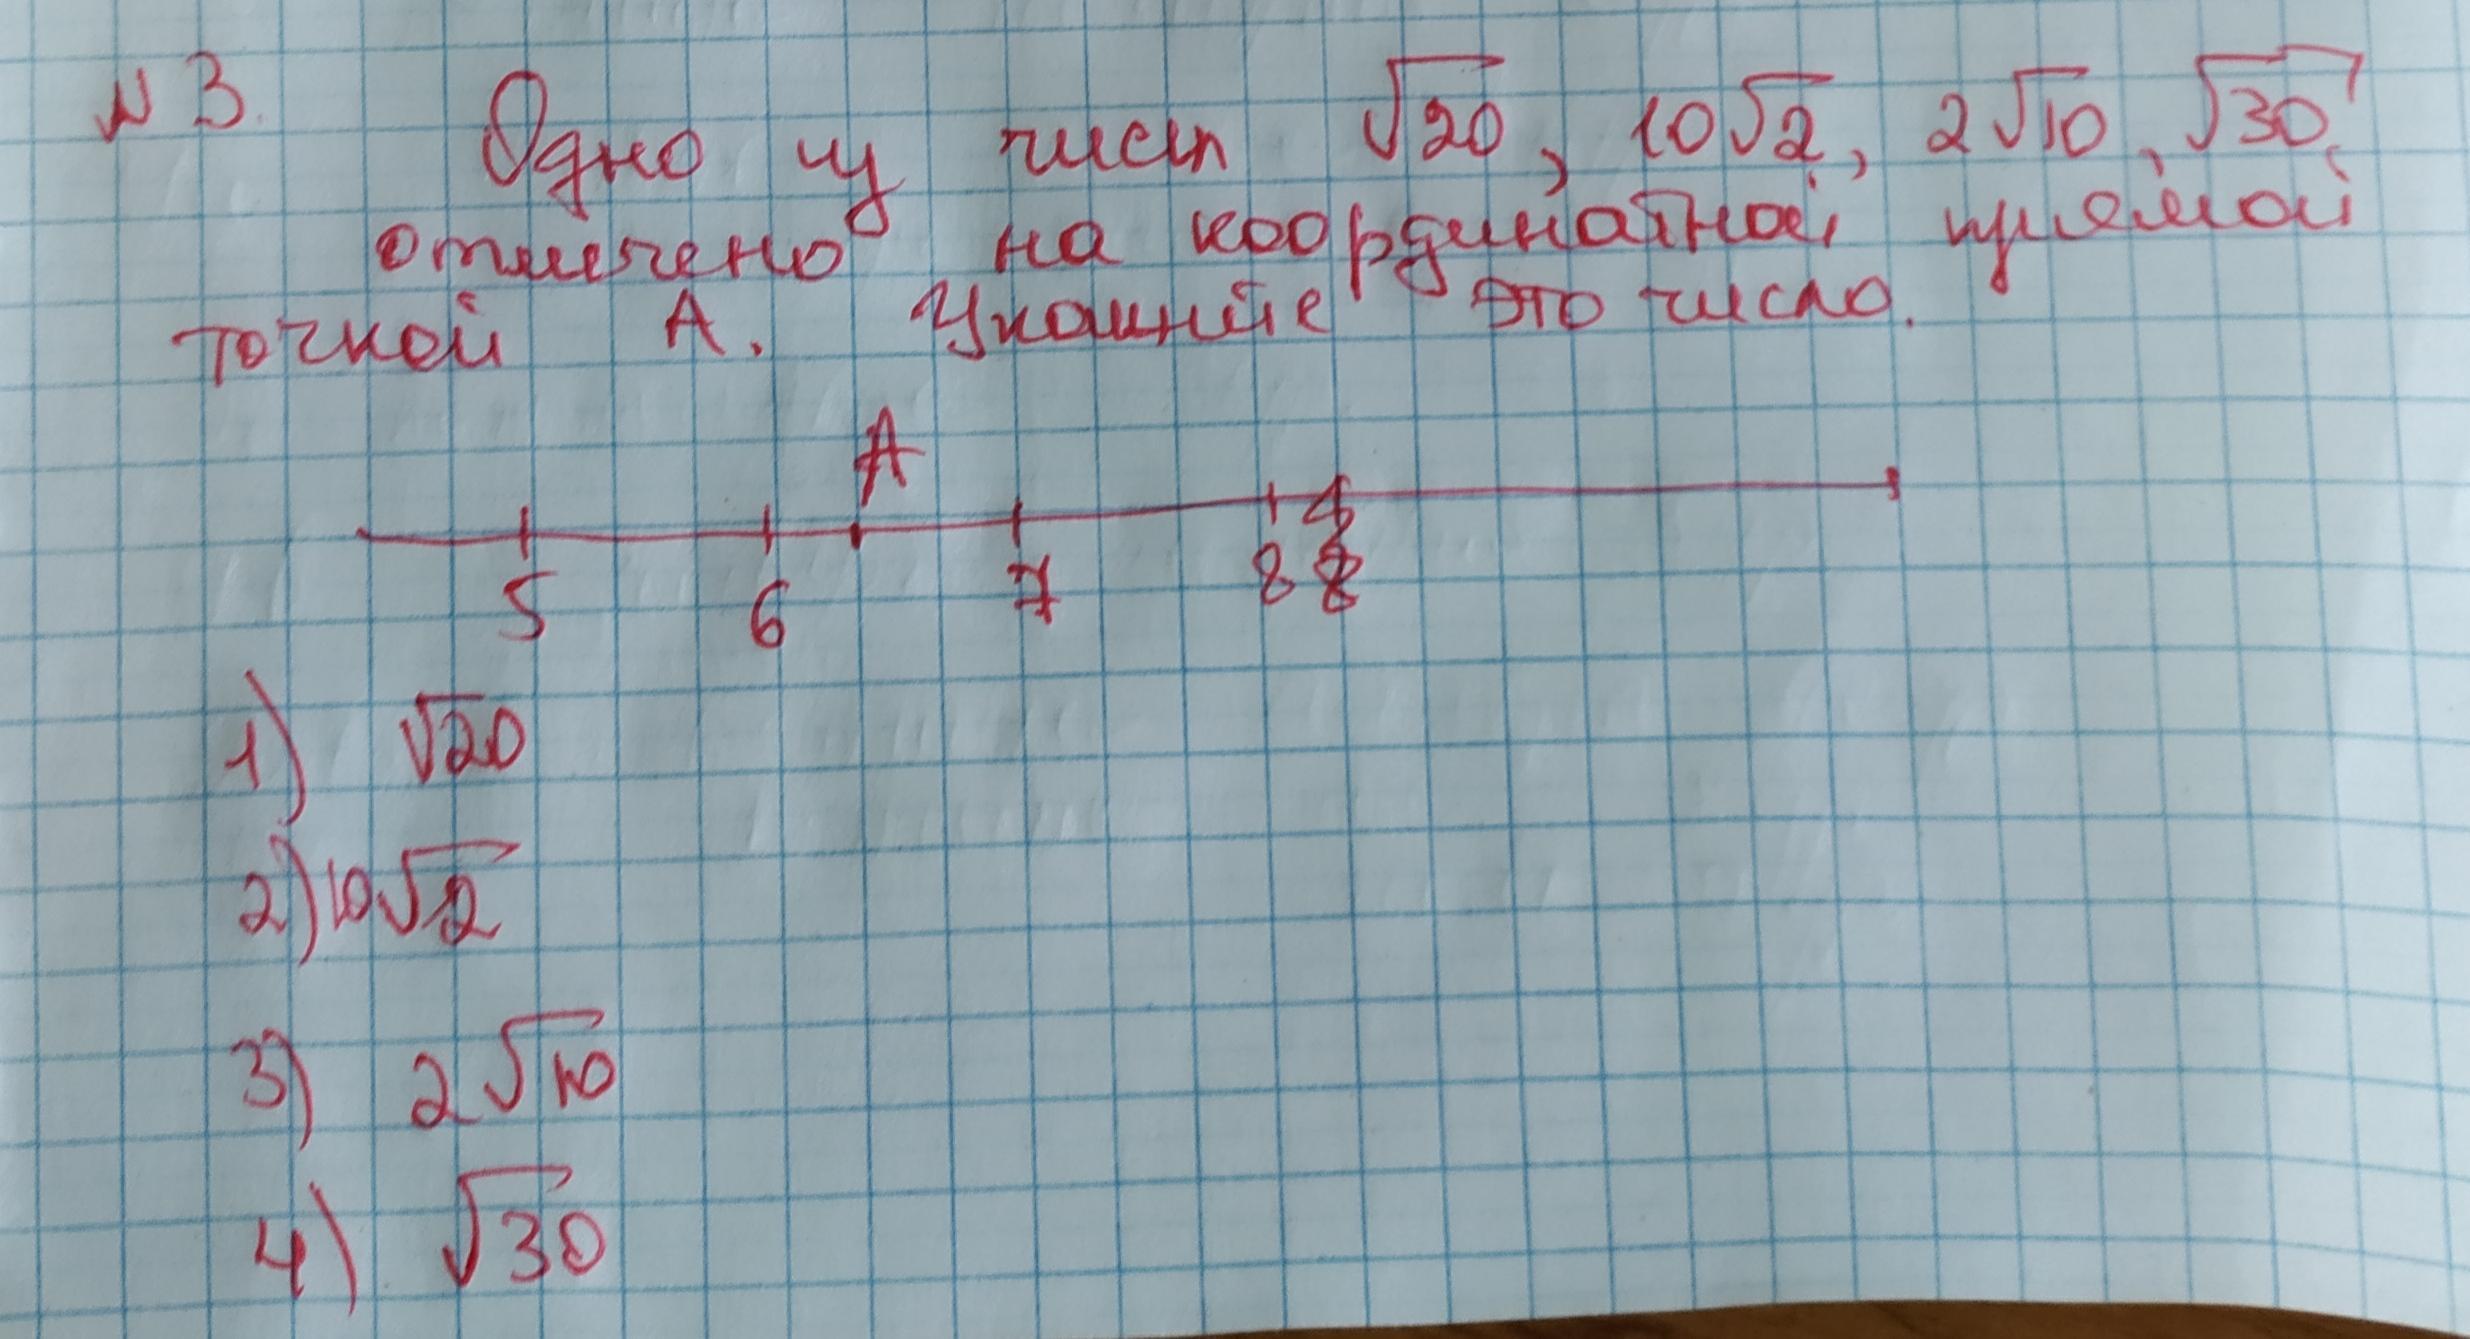 N 3. Одно из чисел √20, 10√2, 2√10, √30
отмечено на координатной прямой
точкой А. Укажите это число.
А
5 6 7 8
1) √20
2) 10√2
3) 2√10
4) √30